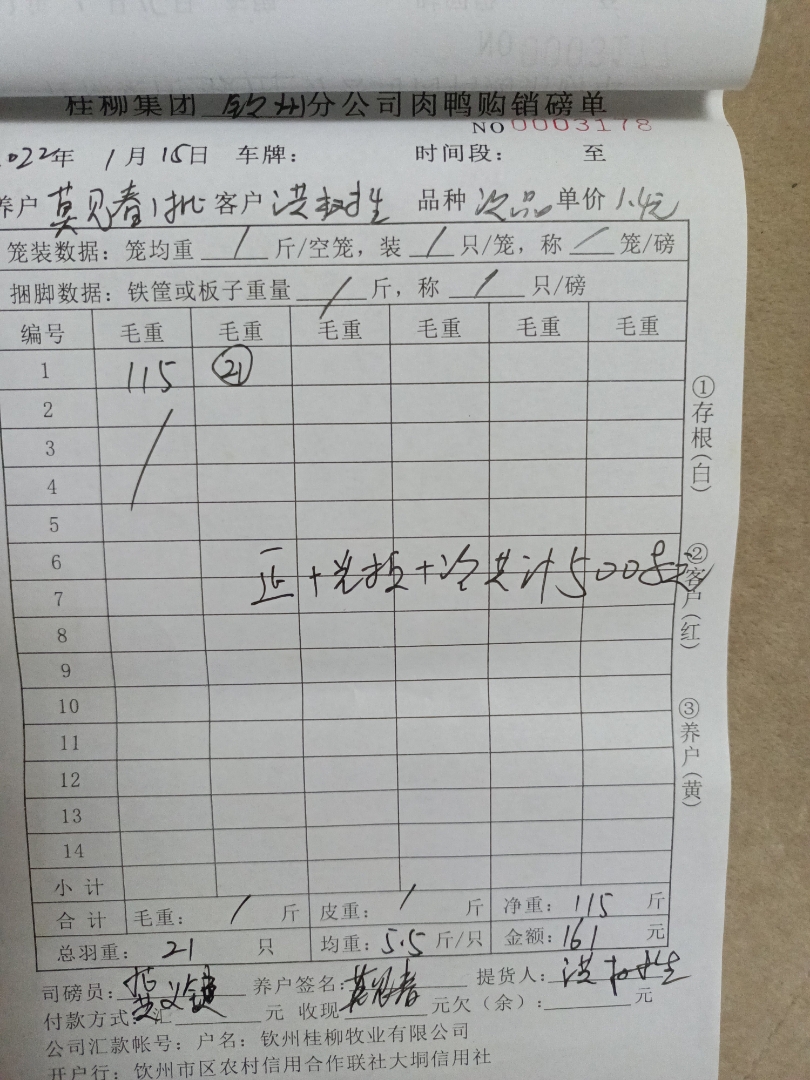 桂柳集团 钦州分公司肉鸭购销磅单
NO 0003178
2022年 1月 15日 车牌: 时间段: 至
养户 莫见春1批 客户 洪权生 品种 次品 单价 1.4元
笼装数据: 笼均重 / 斤/空笼, 装 / 只/笼, 称 / 笼/磅
捆脚数据: 铁筐或板子重量 / 斤, 称 / 只/磅
编号 毛重 毛重 毛重 毛重 毛重 毛重
1 115 21
2
3
4
5
6
正+光板+冷共计500
7
8
9
10
11
12
13
14
小计
合计 毛重: / 斤 皮重: / 斤 净重: 115 斤
总羽重: 21 只 均重: 5.5 斤/只 金额: 161 元
司磅员: 养户签名: 莫见春 提货人: 洪权生
付款方式: 汇 元 收现 元欠(余): 元
公司汇款帐号: 户名: 钦州桂柳牧业有限公司
开户行: 钦州市区农村信用合作联社大垌信用社
①存根(白)
②客户(红)
③养户(黄)